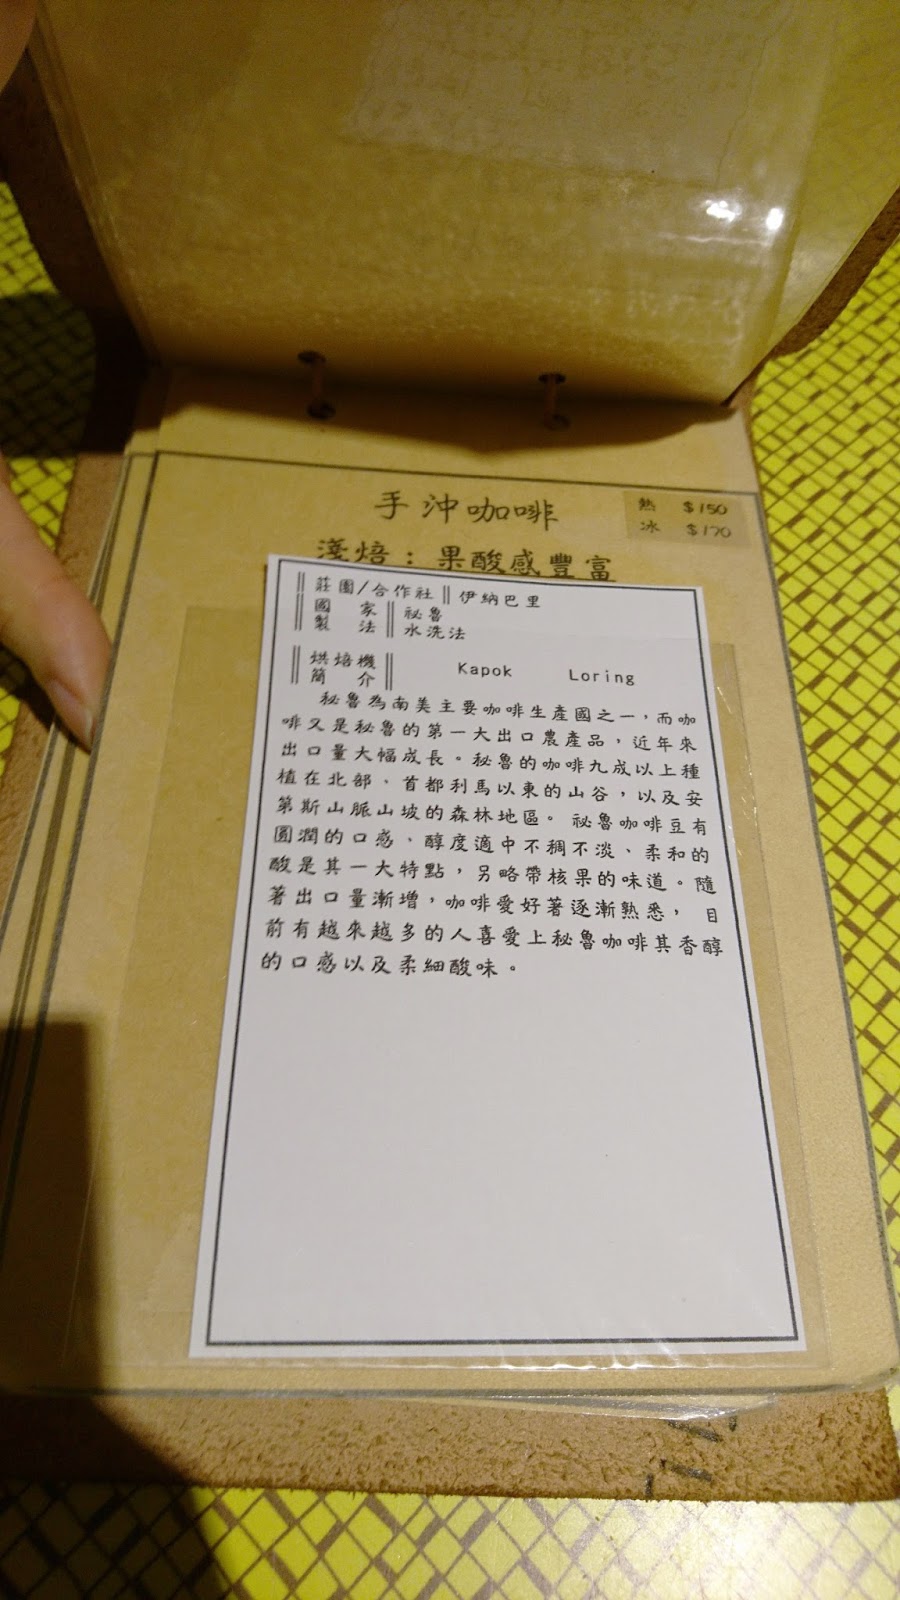 手沖咖啡
熱 $150
冰 $170
淺焙：果酸感豐富
莊園/合作社 伊納巴里
國家 祕魯
製法 水洗法
烘焙機 Kapok Loring
簡介
秘魯為南美主要咖啡生產國之一，而咖
啡又是秘魯的第一大出口農產品，近年來
出口量大幅成長。秘魯的咖啡九成以上種
植在北部、首都利馬以東的山谷，以及安
第斯山脈山坡的森林地區。 祕魯咖啡豆有
圓潤的口感、醇度適中不稠不淡、柔和的
酸是其一大特點，另略帶核果的味道。隨
著出口量漸增，咖啡愛好著逐漸熟悉， 目
前有越來越多的人喜愛上秘魯咖啡其香醇
的口感以及柔細酸味。